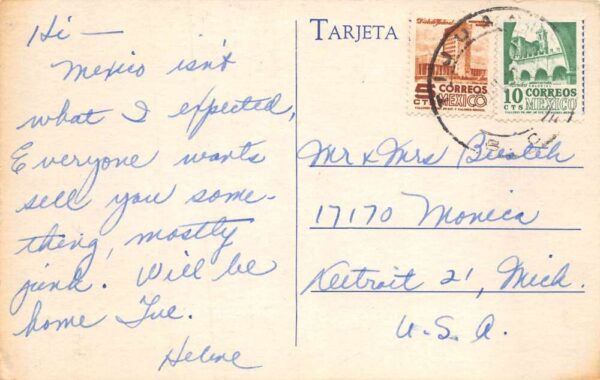 Hi —
Mexico isn't
what I expected,
Everyone wants
sell you some-
thing, mostly
junk. Will be
home Tue.
Helene
TARJETA
Distrito Federal
CTS
CORREOS
MEXICO
10
CTS
CORREOS
MEXICO
Mr & Mrs
17170 Monica
Detroit 21, Mich.
U.S.A.